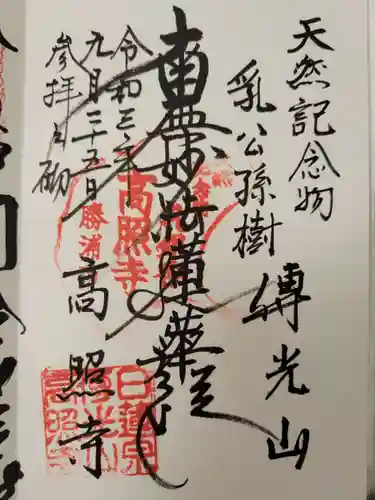 天然記念物
乳公孫樹
傳光山
南無妙法蓮華経
高照寺
令和三年
九月二十五日
参拝之砌
高照寺
勝浦
日蓮宗
傳光山
高照寺